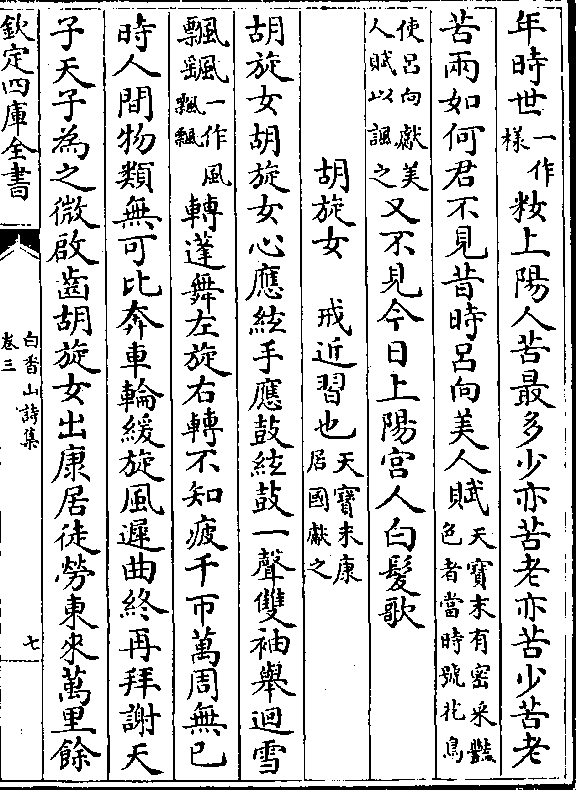 年時世一作樣粧上陽人苦最多少亦苦老亦苦少苦老
苦兩如何君不見昔時呂向美人賦天寶末有密采豔色者當時號花鳥
使呂向獻美人賦以諷之又不見今日上陽宮人白髮歌
胡旋女 戒近習也天寶末康居國獻之
胡旋女胡旋女心應絃手應鼓絃鼓一聲雙袖舉迴雪
飄颻一作風飄飄轉蓬舞左旋右轉不知疲千帀萬周無已
時人間物類無可比奔車輪緩旋風遲曲終再拜謝天
子天子為之微啟齒胡旋女出康居徒勞東來萬里餘
欽定四庫全書
白香山詩集
卷三
七